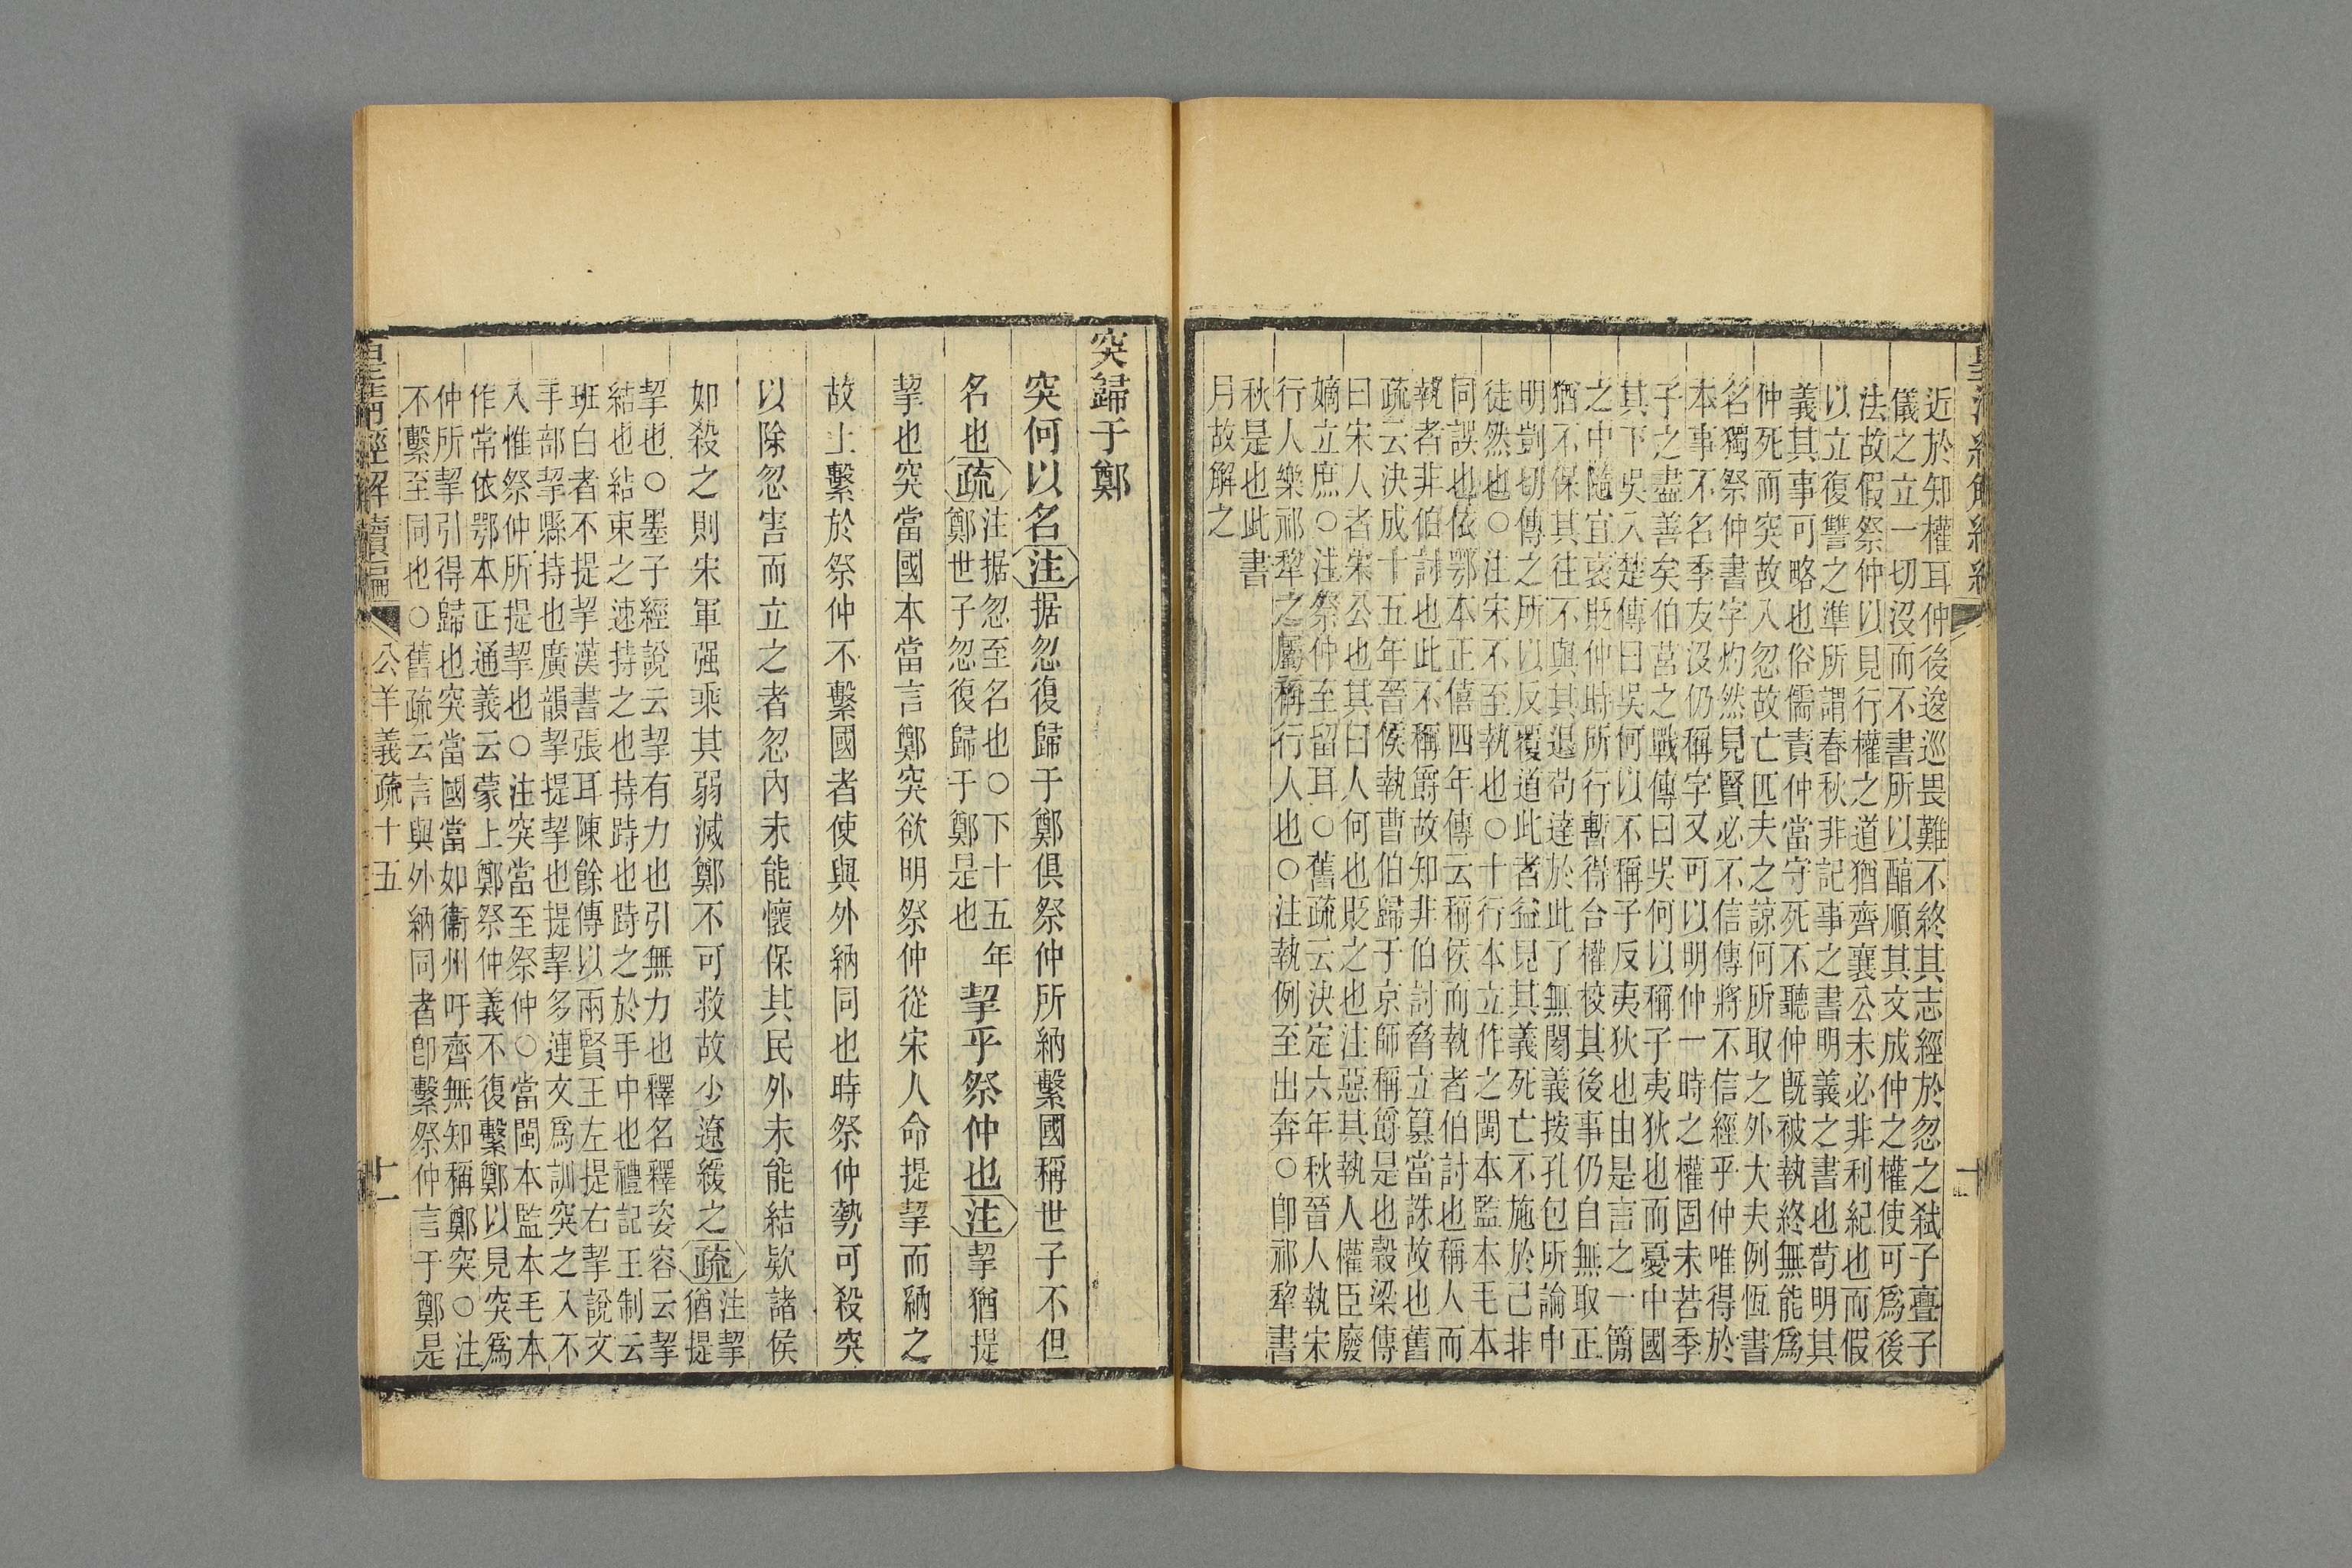 近於知權耳仲後逡巡畏難不終其志經於忽之弑子亹子
儀之立一切沒而不書所以醕順其文成仲之權使可爲後
法故假祭仲以見行權之道猶齊襄公未必非利紀也而假
以立復讐之準所謂春秋非記事之書明義之書也苟明其
義其事可略也俗儒責仲當守死不聽仲旣被執終無能爲
仲死而突故入忽故亡匹夫之諒何所取之外大夫例恆書
名獨祭仲書字灼然見賢必不信傳將不信經乎仲唯得於
本事不名季友沒仍稱字又可以明仲一時之權固未若季
子之盡善矣伯莒之戰傳曰吳何以稱子夷狄也而憂中國
其下吳入楚傳曰吳何以不稱子反夷狄也由是言之一簡
之中隨宜襃貶仲時所行暫得合權校其後事仍自無取正
猶不保其往不與其退苟達於此了無閡義按孔包所論中
明剴切傳之所以反覆道此者益見其義死亡不施於己非
徒然也○注宋不至執也○十行本立作之閩本監本毛本
同誤也依鄂本正僖四年傳云稱侯而執者伯討也稱人而
執者非伯討也此不稱爵故知非伯討脅立篡當誅故也舊
疏云決成十五年晉侯執曹伯歸于京師稱爵是也穀梁傳
曰宋人者宋公也其曰人何也貶之也注惡其執人權臣廢
嫡立庶○注祭仲至留耳○舊疏云決定六年秋晉人執宋
行人樂祁犂之屬稱行人也○注執例至出奔○卽祁犂書
秋是也此書
月故解之
突歸于鄭
突何以名注据忽復歸于鄭俱祭仲所納繫國稱世子不但
名也疏注据忽至名也○下十五年
鄭世子忽復歸于鄭是也
挈乎祭仲也注挈猶提
挈也突當國本當言鄭突欲明祭仲從宋人命提挈而納之
故上繫於祭仲不繫國者使與外納同也時祭仲勢可殺突
以除忽害而立之者忽內未能懷保其民外未能結欵諸侯
如殺之則宋軍强乘其弱滅鄭不可救故少遼緩之疏注挈
猶提
挈也○墨子經說云挈有力也引無力也釋名釋姿容云挈
結也結束之速持之也持跱也跱之於手中也禮記王制云
班白者不提挈漢書張耳陳餘傳以兩賢王左提右挈說文
手部挈縣持也廣韻挈提挈也提挈多連文爲訓突之入不
入惟祭仲所提挈也○注突當至祭仲○當閩本監本毛本
作常依鄂本正通義云蒙上鄭祭仲義不復繫鄭以見突爲
仲所挈引得歸也突當國當如衞州吁齊無知稱鄭突○注
不繫至同也○舊疏云言與外納同者卽繫祭仲言于鄭是
皇淸經解續編
公羊義疏十五
十一